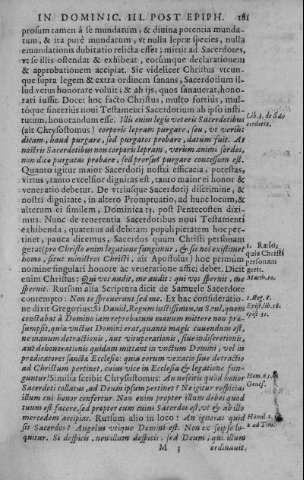 IN DOMINIC. III. POST EPIPH. 181
prosum tamen à se mundatum, & diuina potentia mundatum,
& ita purè mundatum, vt nulla lepræ species, nulla
emundationis dubitatio relicta esset; mittit ad Sacerdotes,
vt se illis ostendat & exhibeat, eorumque declarationem
& approbationem accipiat. Sic videlicet Christus vtcunque
supra legem & extra ordinem sanans, Sacerdotium illud
verus honorare voluit; & ab ijs, quos sanauerat, honorati
iussit. Docet hoc facto Christus, multo fortiùs, multoque
sinceriùs noui Testamenti Sacerdotium ab ipso institutum,
honorandum esse. Illis enim legis veteris Sacerdotibus
(ait Chrysostomus) corporis lepram purgare, seu, vt veriùs
dicam, haud purgare, sed purgatos probare, datum fuit. At
nostris Sacerdotibus non corporis lepram, verùm animi sordes,
non dico purgatas probare, sed prorsus purgare concessum est.
Quanto igitur maior Sacerdotij nostri efficacia, potestas,
virtus, tanto excelsior dignitas est, tanto maiori ei honor &
veneratio debetur. De vtriusque Sacerdotij discrimine, &
nostri dignitate, in altero Promptuario, ad hunc locum, &
alterum ei similem, Dominica 13. post Pentecosten diximus.
Nunc de veneratia Sacerdotibus noui Testamenti
exhibenda, quatenus ad debitam populi pietatem hoc pertinet,
pauca dicemus, Sacerdos quum Christi personam
gerat (pro Christo enim legatione fungimur, & sic nos existimet
homo, sicut ministros Christi, ait Apostolus) hoc primùm
nomine singulari honore ac veneratione affici debet. Dicit
enim Christus: Qui vos audit, me audit: qui vos spernit, me
spernit. Rursum alia Scriptura dicit de Samuele Sacerdote
contempto: Non te spreuerunt sed me. Ex hac consideratione
dixit Gregorius: Si Dauid, Regem iniustissimum, Saul, quem
constabat à Domino iam reprobatum manum mittere non præsumpsit,
quia vnctus Domini erat, quanto magis cauendum est,
ne manum detractionis, aut vituperationis, siue indiscretionis,
aut dehonorationis quidam mittant in vnctum Domini, vel in
prædicatores sanctæ Ecclesiæ: quia eorum vexatio siue detractio
ad Christum pertinet, cuius vice in Ecclesia & legatione funguntur?
Similia scribit Chrysostomus: An nescitis quid honor
Sacerdoti collatus, ad Deum ipsum pertinet? Ne igitur respicias
illum cui honor confertur. Non enim propter illum debes quod
tuum est facere, sed propter eum cuius Sacerdos est, vt & ab illo
mercedem accipias. Rursum alio in loco: An ignoras quid
sit Sacerdos? Angelus vtique Domini est. Non ex seipso loquitur.
Si despicis, non illum despicis; sed Deum, qui illum
M 3 ordinauit.
Lib. 3. de Sacerdotio.
1. Ratio,
quia Christi
personam
gerit.
Matth. 10.
1. Reg. 8.